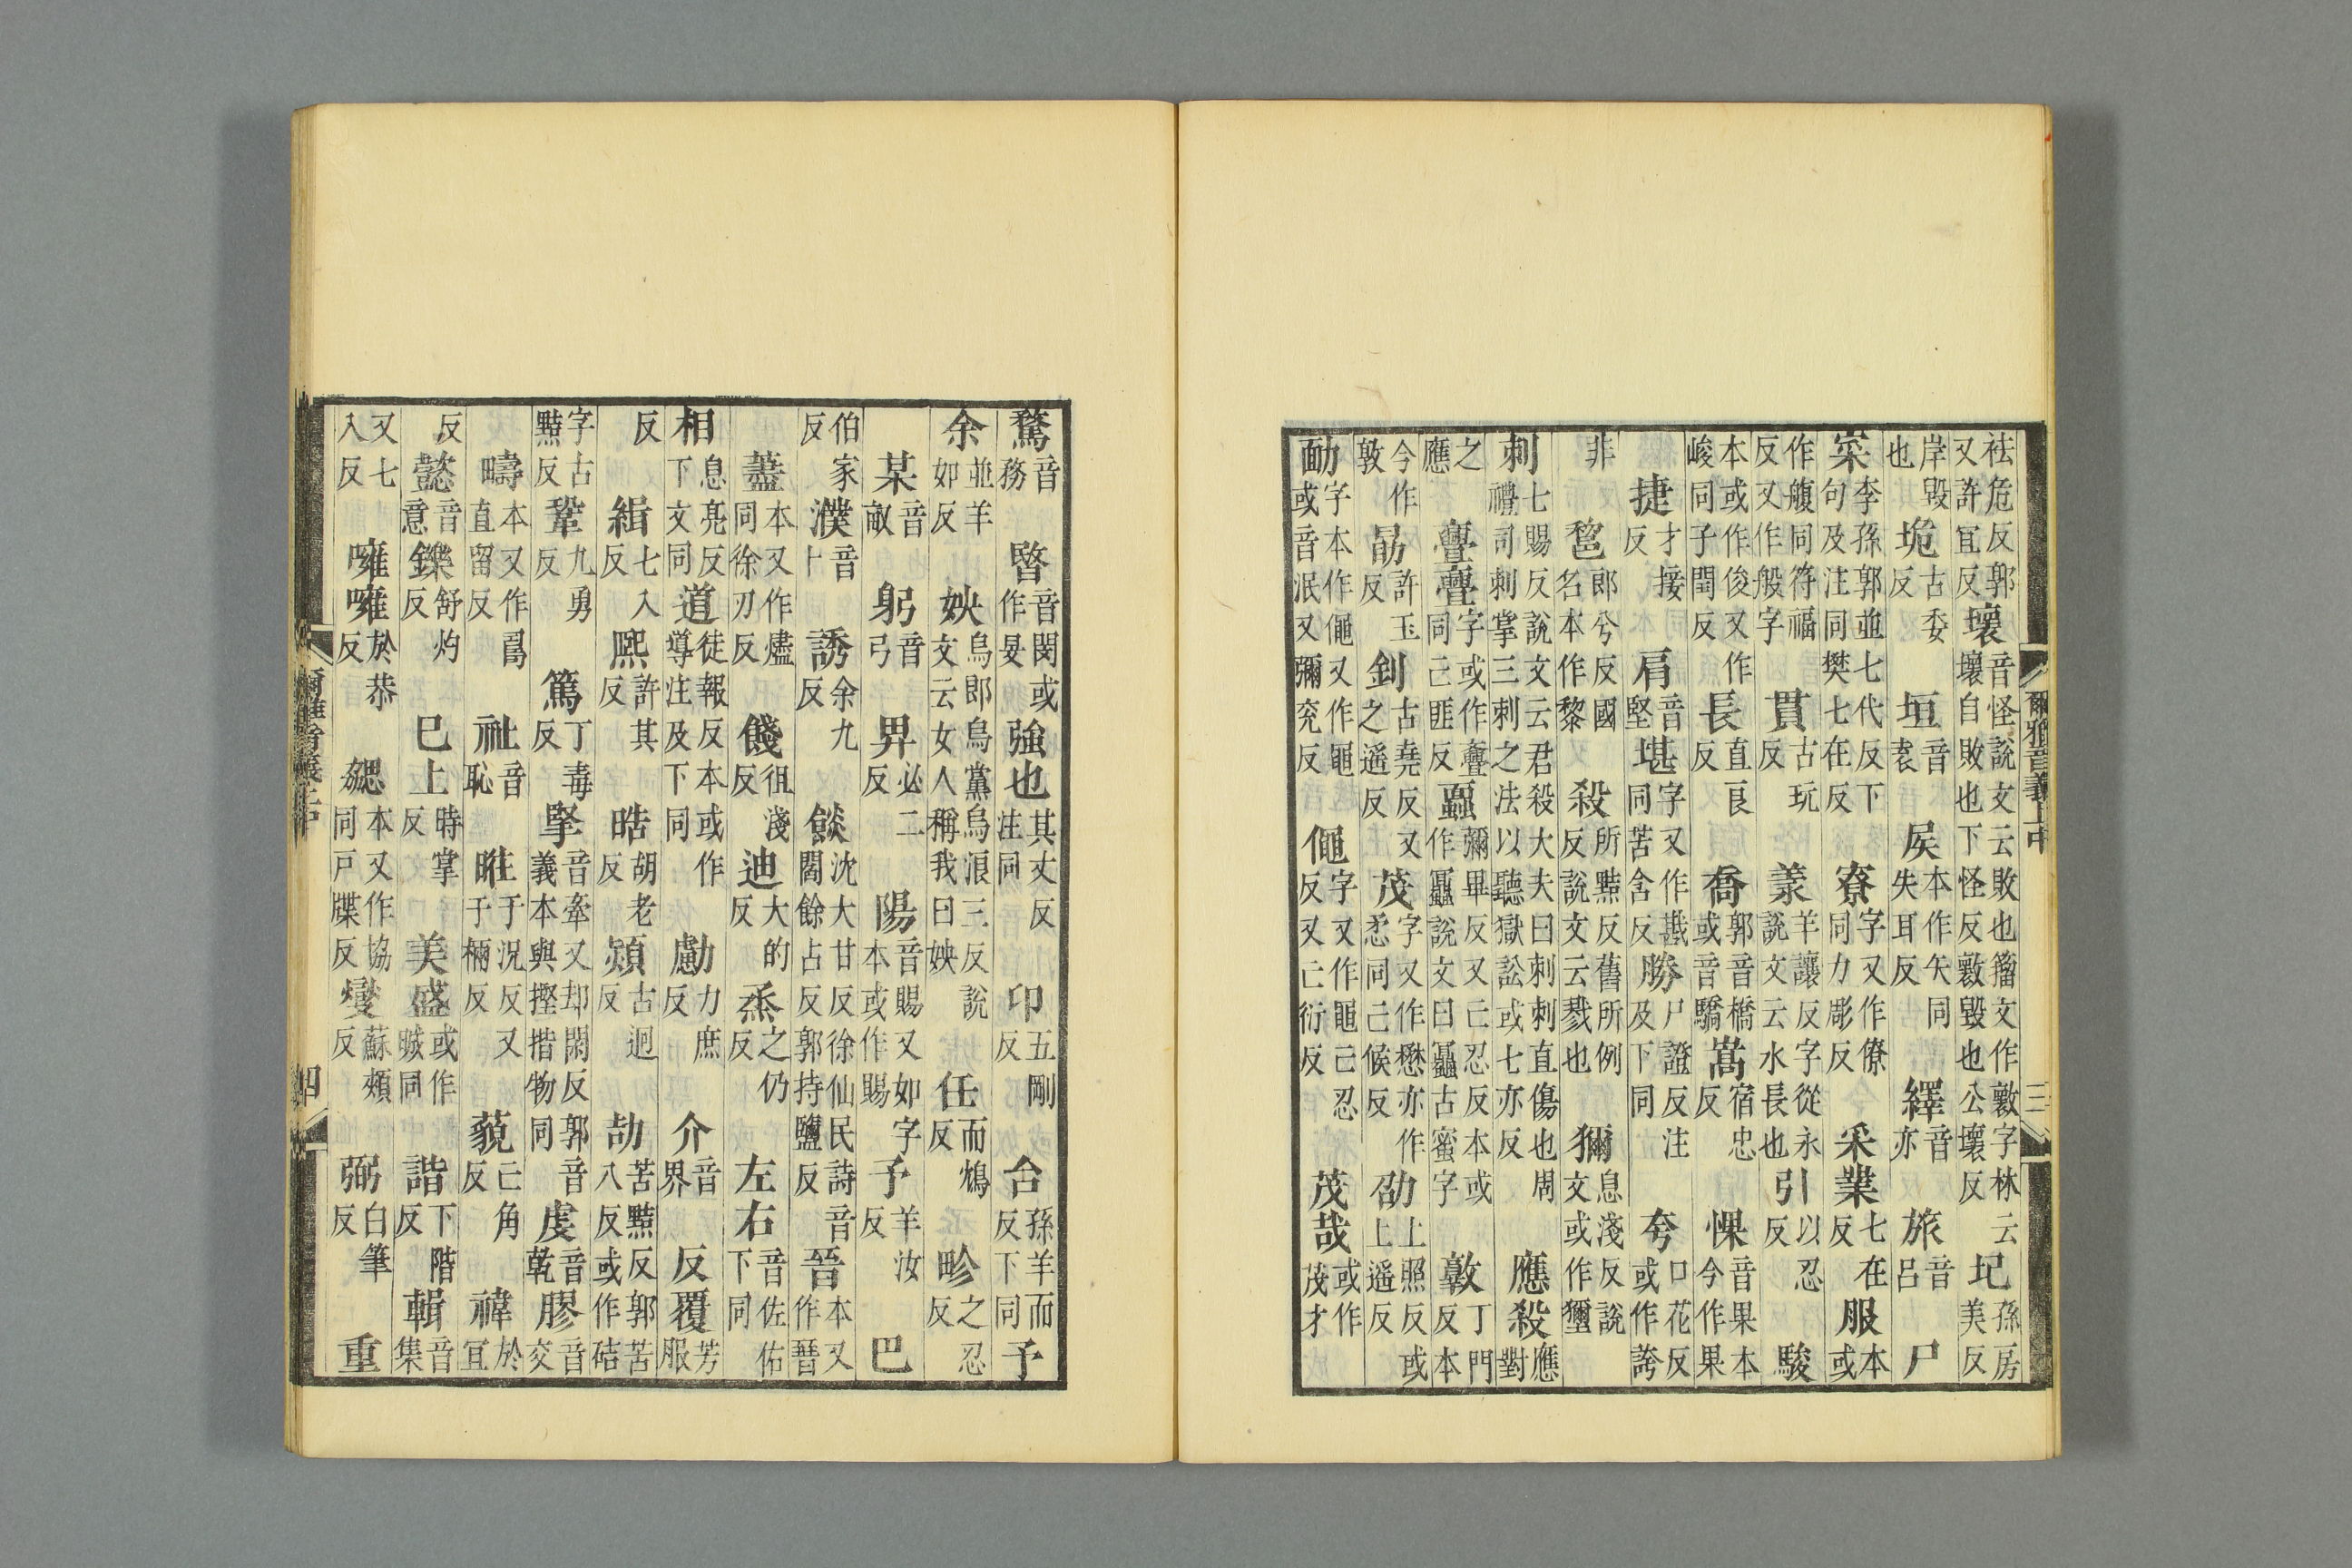 袪危反郭又許冝反壞音怪說文云敗也籀文作㱮字林云壞自敗也下怪反㱮毀也公壞反圮孫房美反
岸毀也垝古委反垣音袁矦本作矢同失耳反繹音亦旅音呂尸
寀李孫郭並七代反下句及注同樊七在反寮字又作僚同力彫反采業七在反服本或
作同符福反又作般字貫古玩反羕羊讓反字從永說文云水長也引以忍反駿
本或作俊又作峻同子閏反長直良反喬郭音橋或音驕嵩宿忠反惈音果本今作果
捷才接反肩音堅堪字又作戡同苦含反勝尸證反注及下同夸口花反或作誇
非郎兮反國名本作黎殺所黠反舊所例反說文云戮也獮息淺反說文或作
刺七賜反說文云君殺大夫曰刺刺直傷也周禮司刺掌三刺之法以聽獄訟或七亦反應殺應對
之應亹亹字或作斖同亡匪反蠠彌畢反又亡忍反本或作說文曰蠠古蜜字敦丁門反本
今作敦勗許玉反釗古堯反又之遥反茂字又作懋亦作同亡候反劭上照反或上遥反
勔字本作僶又作黽或音泯又彌兖反僶字又作黽亡忍反又亡衍反茂哉或作茂才
爾雅音義上中 三
騖音務暋音閔或作強也其丈反注同卬五剛反台孫羊而反下同予
余並羊如反姎烏郎烏黨烏浪三反說文云女人稱我曰姎任而鴆反畛之忍反
某音畝躬音弓畀必二反陽音賜又如字本或作賜予羊汝反巴
伯家反濮音卜誘余九反餤沈大甘反徐仙民詩音閻餘占反郭持鹽反晉本又作
藎本又作燼同徐刃反餞徂淺反迪大的反烝之仍反左右音佐佑下同
相息亮反下文同道徒報反本或作導注及下同勴力庶反介音界反覆芳服
反緝七入反熙許其反晧胡老反熲古迥反劼苦黠反郭苦八反或作硈
字古黠反鞏九勇反篤丁毒反掔音牽又却閑反郭音義本與摼揩物同虔音乾膠音交
疇本又作直留反祉音恥暀于況反又于輛反藐亡角反禕於冝
反懿音意鑠舒灼反巳上時掌反美盛或作晠同諧下階反輯音集
又七入反噰噰於恭反勰本又作協同戸牒反燮蘇頰反弼白筆反重
爾雅音義上中 四